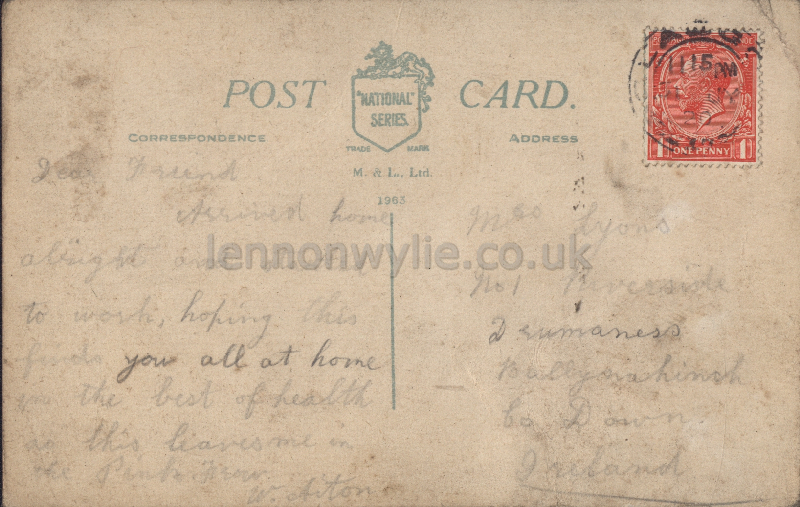 POST CARD.
"NATIONAL"
SERIES.
TRADE MARK
CORRESPONDENCE
ADDRESS
M. & L., Ltd.
1963
ONE PENNY
1 1
11 15 PM
Dear Friend
Arrived home
alright and
to work, hoping this
finds you all at home
the best of health
as this leaves me in
the Pink
W. Aiton
Mrs Lyons
No 1 Riverside
Drumaness
Ballynahinch
Co Down
Ireland
lennonwylie.co.uk